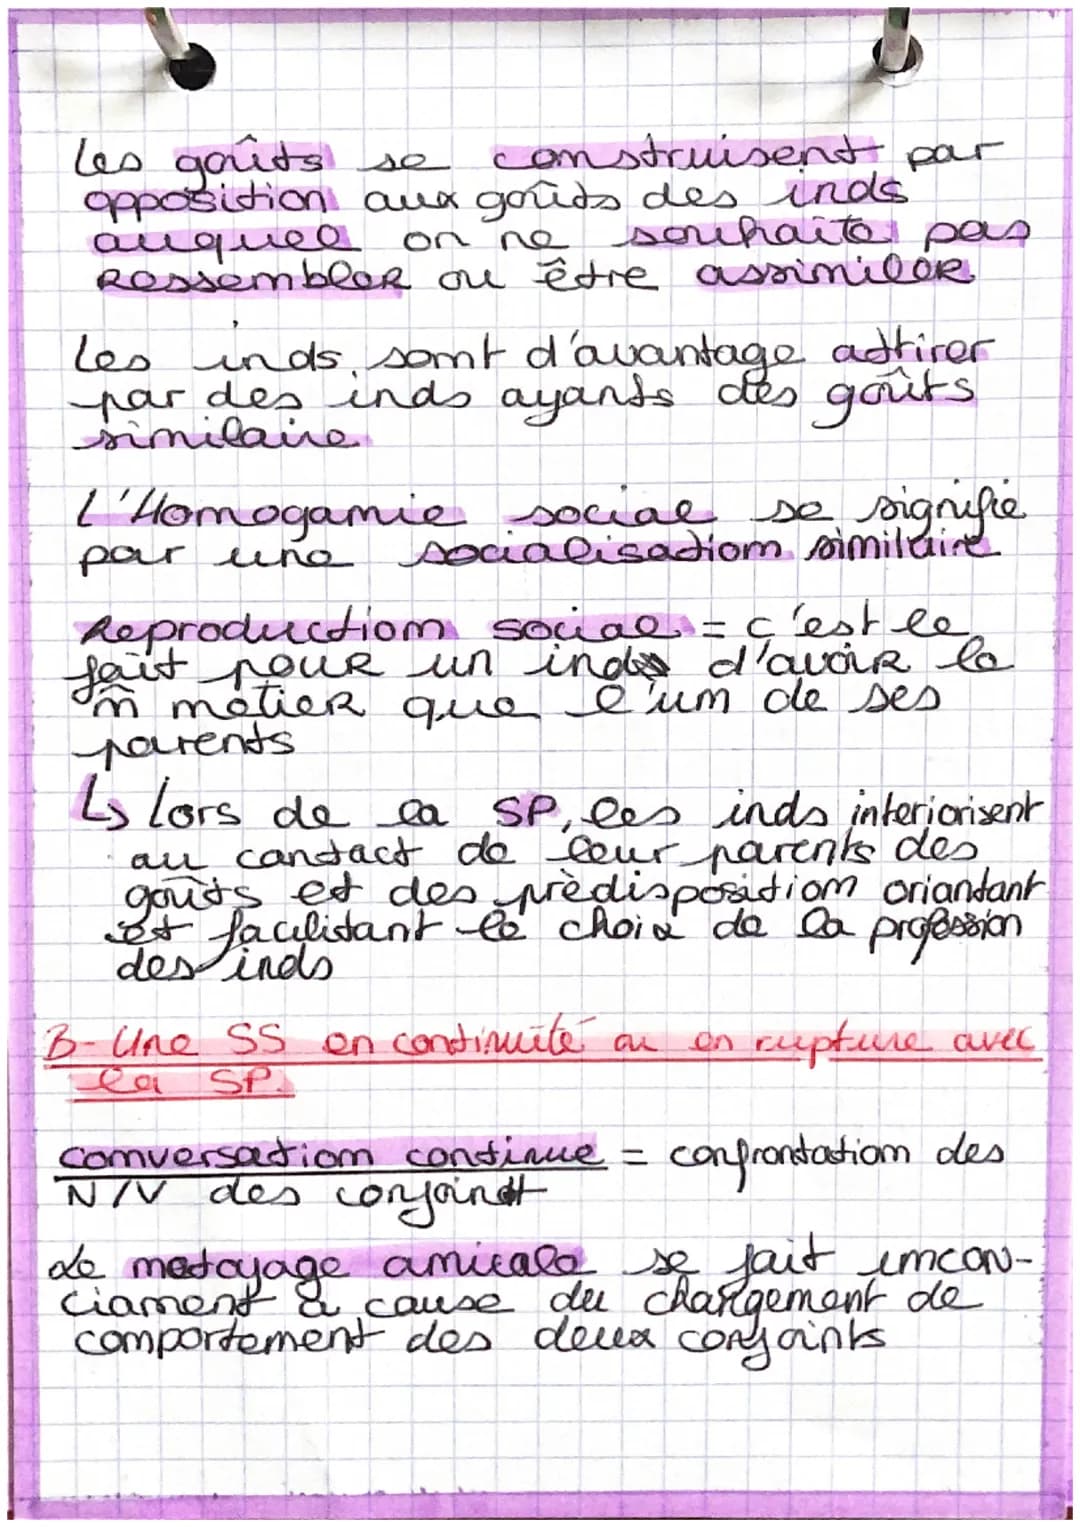 Les goûts se construisent par
opposition aux goûts des inds
auquel on ne souhaite pas
Ressembler ou être assimiler
Les inds. sont d'avantage attirer
par des inds ayants des goûts
similaire
L'Homogamie social se signifie
par une socialisation similaire
Reproduction social = c'est le
fait pour un inds d'avoir le
m̂ métier que l'un de ses
parents
↳ Lors de la SP, les inds interiorisent
au contact de leur parents des
goûts et des prèdisposition oriantant
et facilitant le choix de la profession
des inds
B- Une SS en continuité ou en rupture avec
la SP.
conversation continue = confrontation des
N/V des conjoint
Le metoyage amicale se fait incon-
ciament à cause du changement de
comportement des deux conjoints